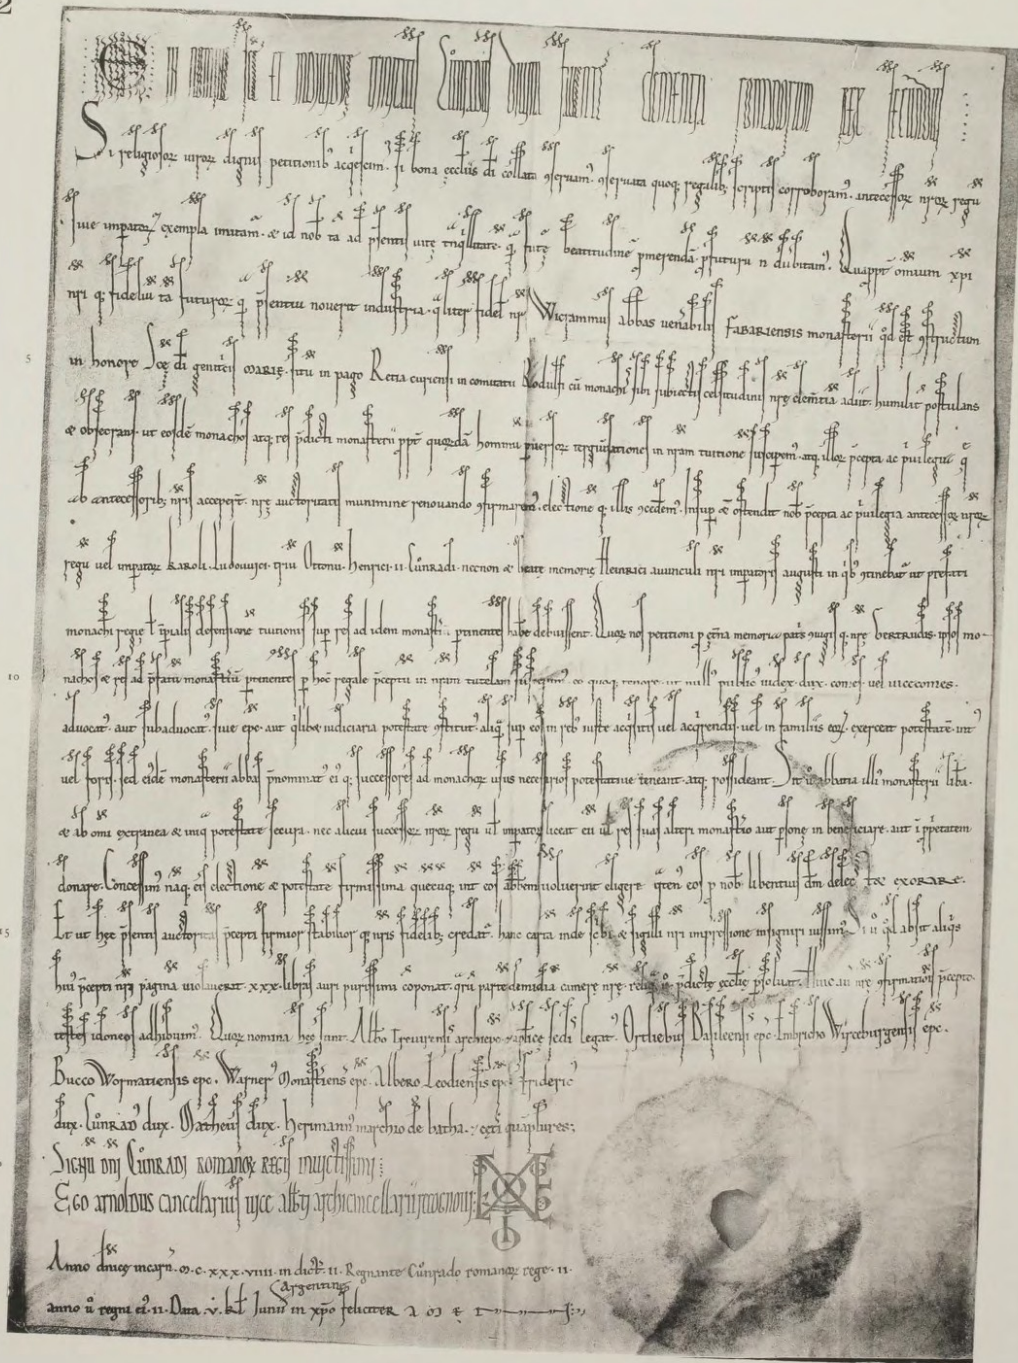 2
In nomine sce et individue trinitatis Cůnradus divina favente clementia romanorum rex secundus
Si religiosoꝝ viroꝝ dignis petitionibꝰ acqescimꝰ. si bona eccliis di collata ꝯservamꝰ. ꝯservata quoq; regalibꝫ scriptis corroboramꝰ. antecessoꝝ nroꝝ regū
sive imperatoꝝ exempla imitamꝰ. & id nob ta ad psentis vite tnqillitate. q fute beatitudine pmerenda pfuturu n dubitamꝰ. Quappt omium xpi
nri q; fideliu ta futuroꝝ q psentiu noverit industria. qliter fidel nr Wicrammus abbas venabilis Fabariensis monasterii qd est ꝯstructum
5
in honore Sce di genitcis Marie. situ in pago Retia curiensi in comitatu Rodulfi cu monachis sibi subiectis celsitudinis nre clementia adiit. humilit postulans
& obsecrans. ut eosde monachos atq; res pdicti monasterii ppt quorda hominu pversoꝝ tergiversationes in nram tuitione suscipem. atq; illoꝝ pcepta ac pvilegia q
ab antecessoribꝫ nris acceperit. nre auctoritatis munimine renovando ꝯfirmarem. electione q; illis ꝯcedemꝰ. Insup & ostendit nob pcepta ac pvilegia antecessoꝝ nroꝝ
regu vel imperatoꝝ Karoli. Ludovvici. triu Ottonu. Henrici. ii. Cůnradi. necnon & beate memorie Heinrici avunculi nri imperatoris augusti in qibꝰ ꝯtinebatꝰ ut prefati
monachi regie l ipialis defensione tuitionis sup res ad idem monastiu ptinentes habe debuissent. Quoꝝ nos petitioni p etna memoria patris ꝯiugis q; nre Gertrudis. ipsos mo-
10
nachos & res ad pfatu monastiu ptinentes p hoc regale pceptu in nram tutelam suscepimꝰ. eo quoq; tenore. ut nullꝰ publicꝰ iudex. dux. comes. vel vicecomes.
advocatꝰ. aut subadvocatꝰ. sive epc. aut qlibet iudiciaria potestate ꝯstitutꝰ. aliq sup eos in rebꝰ iuste acqisitis vel acqirendis. vel in familiis eoꝝ exerceat potestate. intꝰ
vel foris. sed eide monasterii abbas pnominatꝰ ei q; successores ad monachoꝝ usus necessarios potestative teneant. atq; possideant. Sit v abbatia illiꝰ monasterii liba.
& ab omi extranea & iniq potestate secura. nec alicui successoꝝ nroꝝ regu vl impatoꝝ liceat eu vl res suas alteri monastio aut psone in beneficiare. aut i ppetatem
donare. Concessimꝰ naq; eis electione & potestate firmissima quecuq; int eos abbem voluerint eligere. qtenꝰ eos p nob libentius dm delectet exorare.
15
Et ut hec psentis auctoritas pcepta firmior stabilior q; nris fidelibꝫ credatꝰ. hanc carta inde scibi & sigilli nri impressione insigniri iussimꝰ. Si v qd absit aliqs
huiꝰ pcepti nri pagina violaverit. xxx. libras auri purissimi coponat. qru parte dimidia camere nre. reliq v pdicte ecclie psolvat. Huic au nre ꝯfirmationis pcepto
testes idoneos adhibuimꝰ. Quoꝝ nomina hec sunt. Albo Trevirensis archiepc & aplice sedis legatꝰ. Ortliebus Basileensis epc. Embricho Wirceburgensis epc.
Bucco Wormatiensis epc. Warnerꝰ Monastiensis epc. Albero Leodiensis epc. Fridericꝰ
dux. Cůnradꝰ dux. Matheus dux. Hermannꝰ marchio de batha. & ceti quaplures;
Signu dni Cůnradi romanoꝝ regis invictissimi
Ego Arnoldus cancellarius vice albti archicancellarii recognovi
Anno dnice incarn. M.C.XXX.VIIII. indict. II. Regnante Cůnrado romanoꝝ rege. II.
Argentine
anno v regni ei. II. Data. V. kl. Iunii in xpo feliciter AMEN